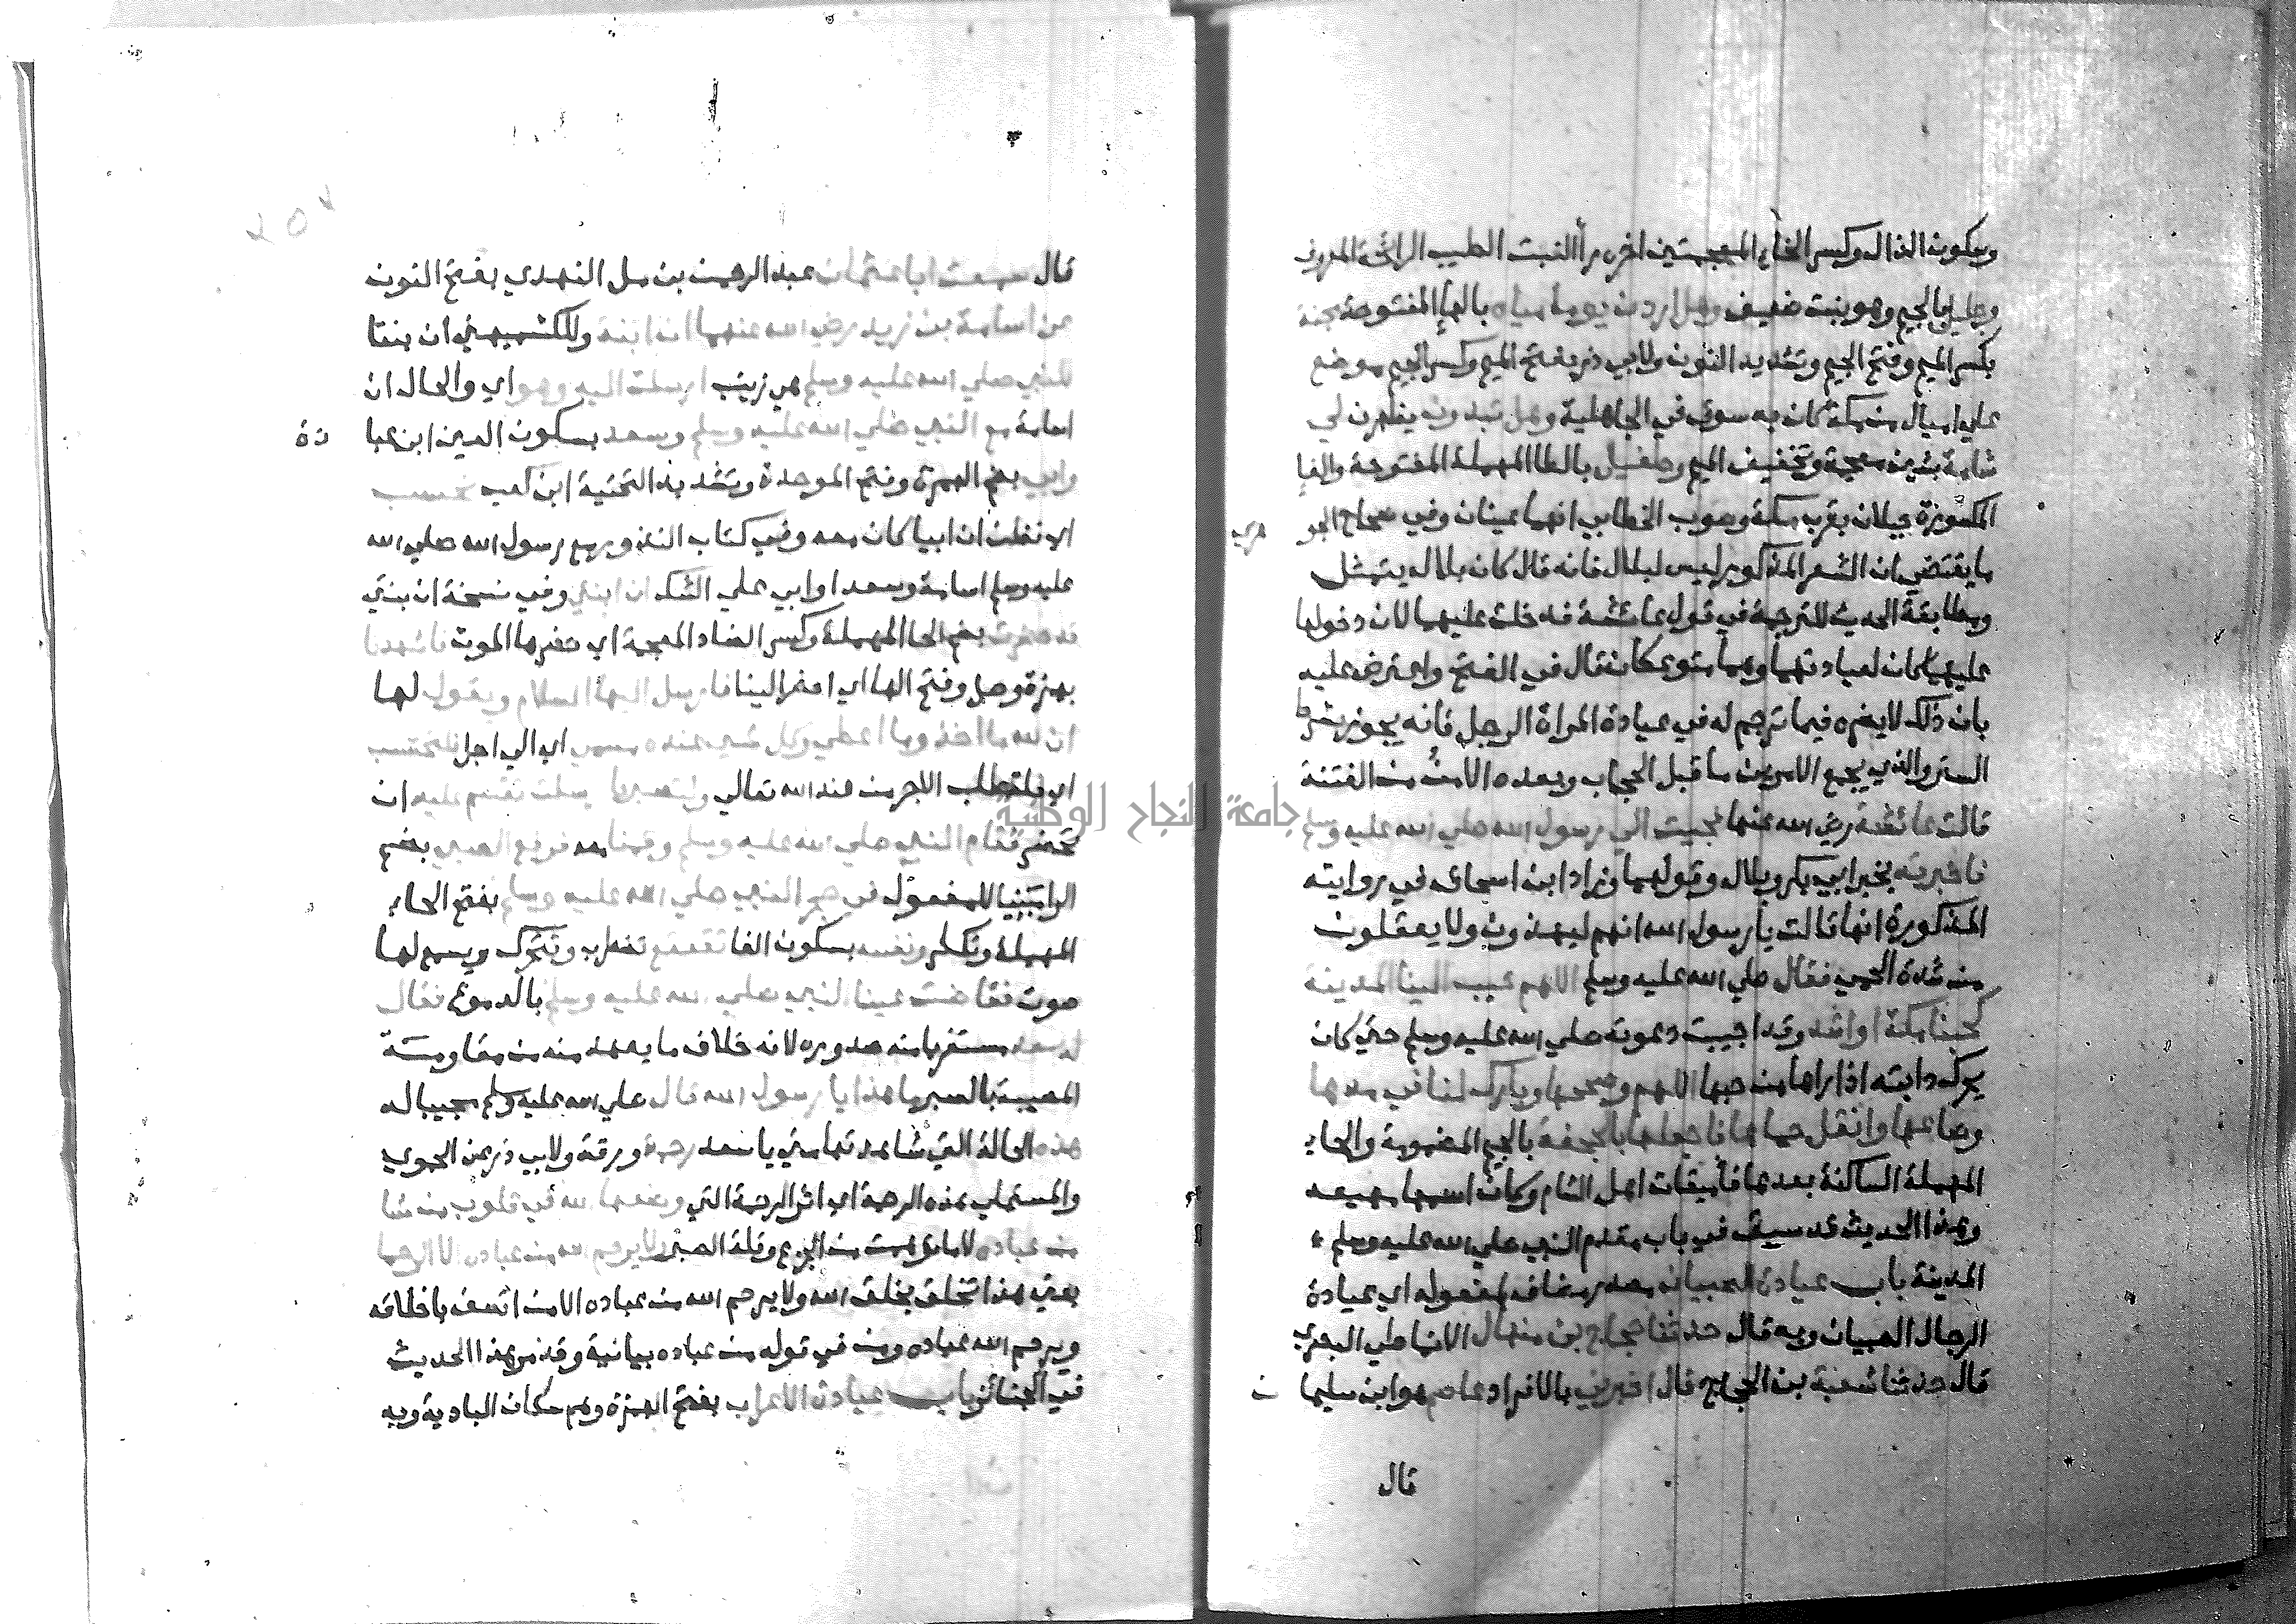 وسكون الذال وكسر الخاء المعجمتين اخره راء النبت الطيب الرائحة المعروف
وجليل بالجيم وهو نبت ضعيف وهل اردن يوما مياه بالهاء المفتوحة مجنة
بكسر الميم وفتح الجيم وتشديد النون ولابي ذر بفتح الميم وكسر الجيم موضع
علي اميال من مكة كان به سوق في الجاهلية وهل تبدون يظهرن لي
شامة بشين معجمة وتخفيف الميم وطفيل بالطا المهملة المفتوحة والفاء
المكسورة جبلان بقرب مكة وصوب الخطابي انهما عينان وفي صحاح الجو هري
ما يقتضي ان الشعر المذكور ليس لبلال فانه قال كان بلال يتمثل
ومطابقة الحديث للترجمة في قول عائشة فدخلت عليهما لان دخولها
عليهما كان لعيادتهما وهما متوعكان فقال في الفتح واعترض عليه
بان ذلك لا يضره فيما ترجم له في عيادة المراة الرجل فانه يجوز بشرط
الستر والذي يجمع الامرين ما قبل الحجاب وبعده الامن من الفتنة
قالت عائشة رضي الله عنها فجيت الي رسول الله صلي الله عليه وسلم
فاخبرته بخبر ابي بكر وبلال وقولهما وزاد ابن اسحاق في روايته
المذكورة انها قالت يا رسول الله انهم ليهذون ولا يعقلون
من شدة الحمي فقال صلي الله عليه وسلم اللهم حبب الينا المدينة
كحبنا مكة او اشد وقد اجيبت دعوته صلي الله عليه وسلم حتي كان
يحرك دابته اذا راها من حبها اللهم وصححها وبارك لنا في مدها
وصاعها وانقل حماها فاجعلها بالجحفة بالجيم المضمومة والحاء
المهملة الساكنة بعدها فا ميقات اهل الشام وكان اسمها مهيعه
وهذا الحديث قد سبق في باب مقدم النبي صلي الله عليه وسلم
المدينة باب عيادة الصبيان مصدر مضاف لمفعوله اي عيادة
الرجال الصبيان وبه قال حدثنا حجاج بن منهال الانماطي البصري
قال حدثنا شعبة بن الحجاج قال اخبرني بالافراد عاصم هو ابن سليما ن
قال
قال سمعت ابا عثمان عبد الرحمن بن مل النهدي بفتح النون
عن اسامة بن زيد رضي الله عنهما ان ابنة وللكشميهني ان بنتا
للنبي صلي الله عليه وسلم هي زينب ارسلت اليه وهو اي والحال ان
اسامة مع النبي صلي الله عليه وسلم وسعد بسكون العين ابن عبا دة
وابي بضم الهمزة وفتح الموحدة وتشديد التحتية ابن كعب نحسب
اي نظن ان ابيا كان معه وفي كتاب النذور ومع رسول الله صلي الله
عليه وسلم اسامة وسعد او ابي علي الشك ان ابني وفي نسخة ان بنتي
قد حضرت بضم الحا المهملة وكسر الضاد المعجمة اي حضرها الموت فاشهدنا
بهمزة وصل وفتح الها اي احضر الينا فارسل اليها السلام ويقول لها
ان لله ما اخذ وما اعطي وكل شي عنده مسمي اي الي اجل فلتحتسب
اي فلتطلب الاجر من عند الله تعالي ولتصبر فارسلت تقسم عليه ان
تحضر فقام النبي صلي الله عليه وسلم وقمنا معه فرفع الصبي بضم
الرا مبنيا للمفعول في حجر النبي صلي الله عليه وسلم بفتح الحاء
المهملة وتكسر ونفسه بسكون الفا تقعقع تضطرب وتتحرك ويسمع لها
صوت ففاضت عينا النبي صلي الله عليه وسلم بالدموع فقال
له سعد مستغربا منه صدوره لانه خلاف ما يعهد منه من مقاومة
المصيبة بالصبر ما هذا يا رسول الله قال صلي الله عليه وسلم مجيبا له
هذه الحالة التي شاهدتها مني يا سعد رحمة ورقة ولابي ذر عن الحموي
والمستملي هذه الرحمة اي اثر الرحمة التي وضعها الله في قلوب من شا
من عباده لا ما توهمت من الجزع وقلة الصبر ولا يرحم الله من عباده الا الرحما
يعني هذا تخلق بخلق الله ولا يرحم الله من عباده الا من اتصف باخلاقه
ويرحم الله عباده ومن في قوله من عباده بيانية وقد مر هذا الحديث
في الجنائز باب عيادة الاعراب بفتح الهمزة وهم سكان البادية وبه
جامعة النجاح الوطنية